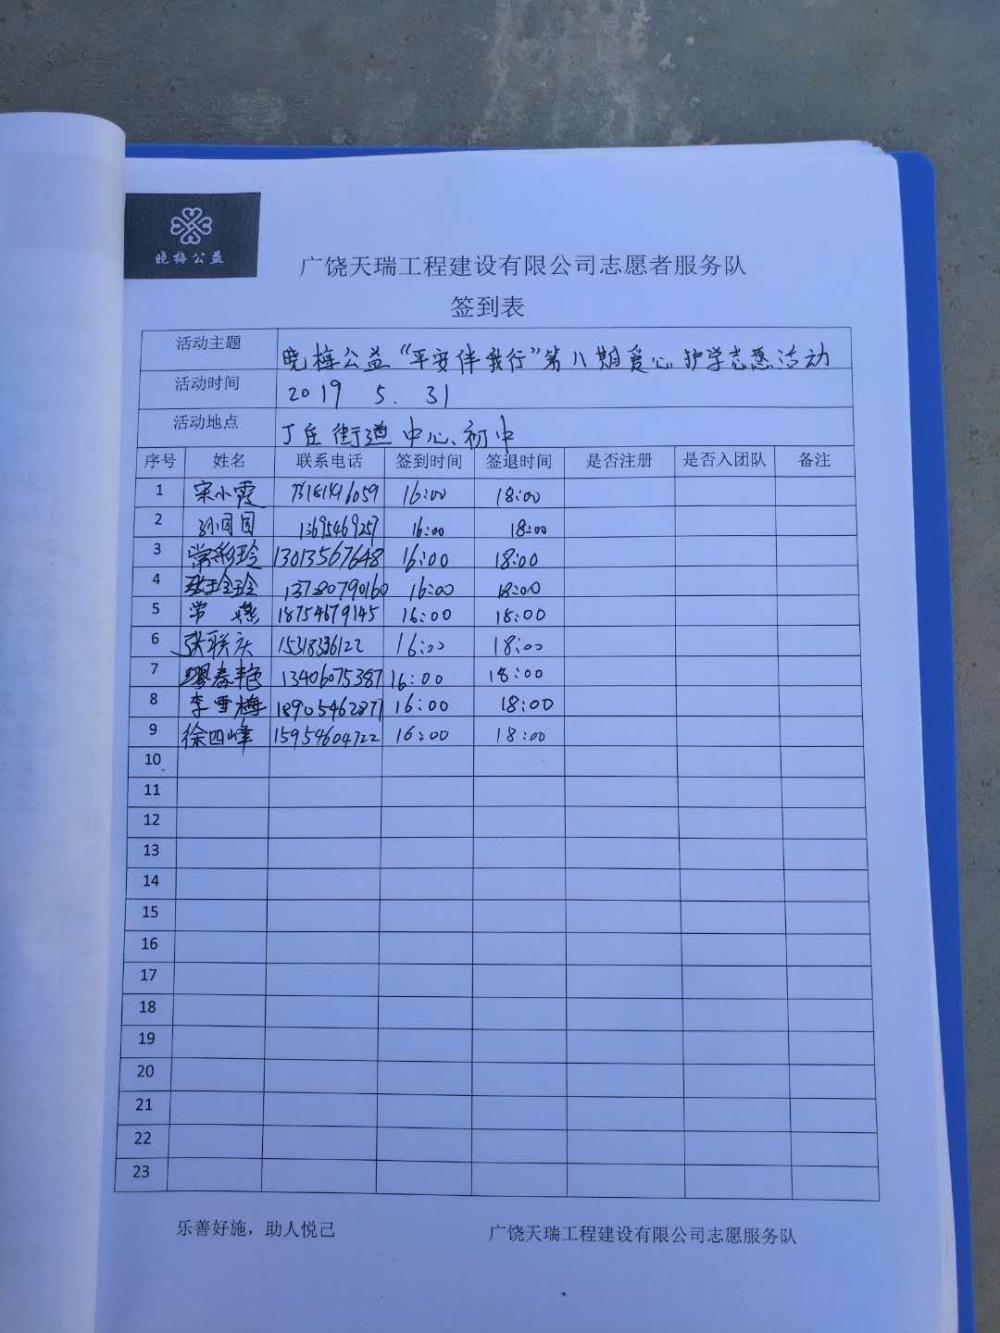 晓梅公益
广饶天瑞工程建设有限公司志愿者服务队
签到表
活动主题 晓梅公益“平安伴我行”第八期爱心护学志愿活动
活动时间 2019 5. 31
活动地点 丁庄街道中心初中
序号 姓名 联系电话 签到时间 签退时间 是否注册 是否入团队 备注
1 宋小霞 16:00 18:00
2 孙国国 13695469257 16:00 18:00
3 常彩玲 13013567648 16:00 18:00
4 13780790160 16:00 18:00
5 常 燕 18754679145 16:00 18:00
6 张联庆 16:00 18:00
7 缪春艳 13406075387 16:00 18:00
8 李雪梅 18905462871 16:00 18:00
9 徐四峰 15954604722 16:00 18:00
10
11
12
13
14
15
16
17
18
19
20
21
22
23
乐善好施，助人悦己 广饶天瑞工程建设有限公司志愿服务队